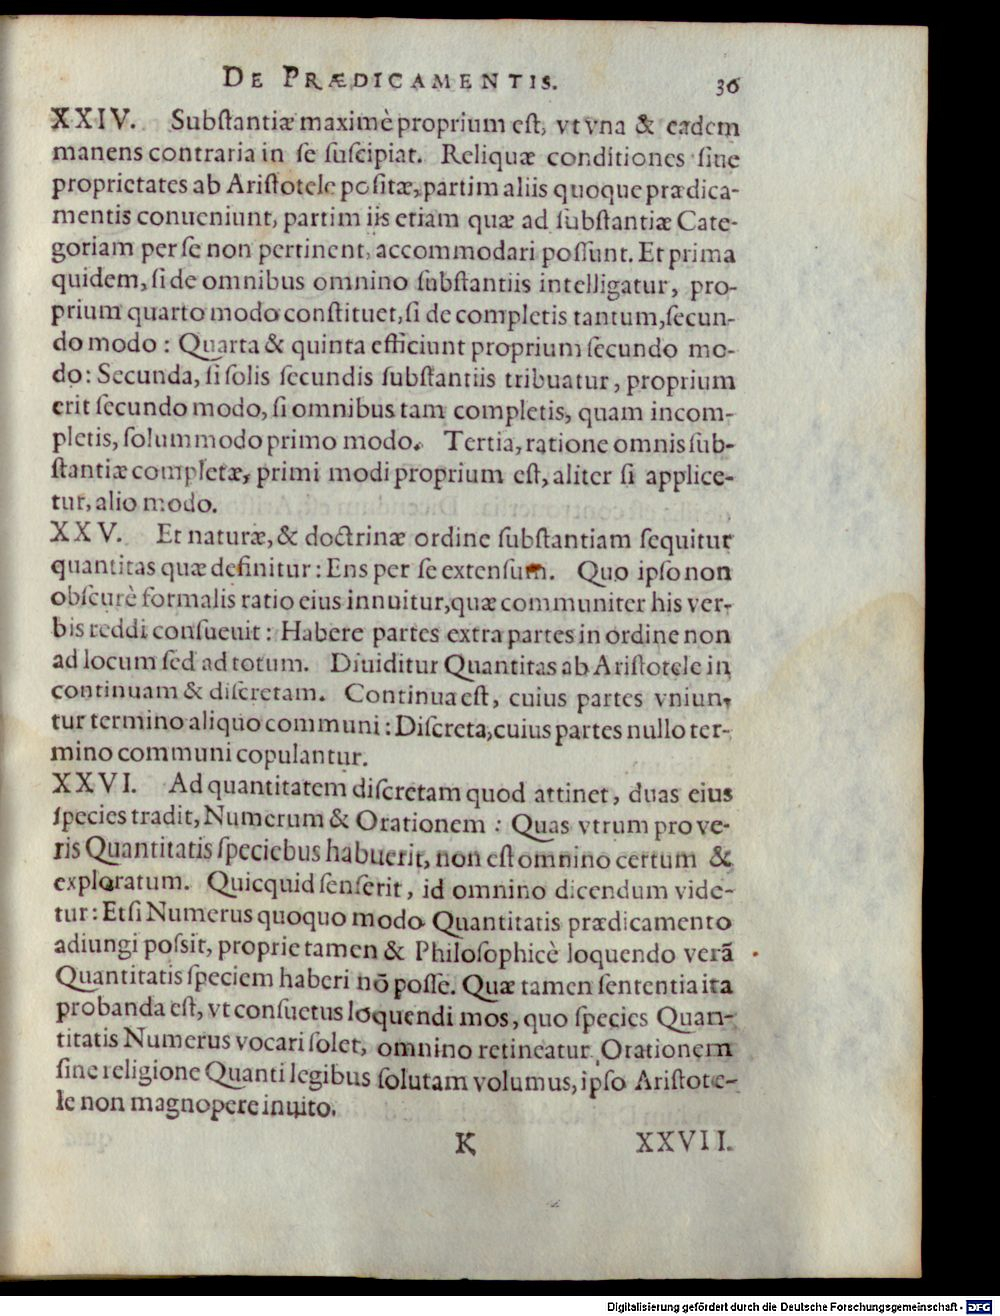 DE PRÆDICAMENTIS. 36
XXIV. Substantiæ maximè proprium est, vt vna & eadem
manens contraria in se suscipiat. Reliquæ conditiones siue
proprietates ab Aristotele positæ, partim aliis quoque prædica-
mentis conueniunt, partim iis etiam quæ ad substantiæ Cate-
goriam per se non pertinent, accommodari possunt. Et prima
quidem, si de omnibus omnino substantiis intelligatur, pro-
prium quarto modo constituet, si de completis tantum, secun-
do modo: Quarta & quinta efficiunt proprium secundo mo-
do: Secunda, si solis secundis substantiis tribuatur, proprium
erit secundo modo, si omnibus tam completis, quam incom-
pletis, solummodo primo modo. Tertia, ratione omnis sub-
stantiæ completæ, primi modi proprium est, aliter si applice-
tur, alio modo.
XXV. Et naturæ, & doctrinæ ordine substantiam sequitur
quantitas quæ definitur: Ens per se extensum. Quo ipso non
obscurè formalis ratio eius innuitur, quæ communiter his ver-
bis reddi consueuit: Habere partes extra partes in ordine non
ad locum sed ad totum. Diuiditur Quantitas ab Aristotele in
continuam & discretam. Continua est, cuius partes vniun-
tur termino aliquo communi: Discreta, cuius partes nullo ter-
mino communi copulantur.
XXVI. Ad quantitatem discretam quod attinet, duas eius
species tradit, Numerum & Orationem: Quas vtrum pro ve-
ris Quantitatis speciebus habuerit, non est omnino certum &
exploratum. Quicquid senserit, id omnino dicendum vide-
tur: Etsi Numerus quoquo modo Quantitatis prædicamento
adiungi possit, proprie tamen & Philosophicè loquendo verã
Quantitatis speciem haberi nõ posse. Quæ tamen sententia ita
probanda est, vt consuetus loquendi mos, quo species Quan-
titatis Numerus vocari solet, omnino retineatur. Orationem
sine religione Quanti legibus solutam volumus, ipso Aristote-
le non magnopere inuito.
K XXVII.
Digitalisierung gefördert durch die Deutsche Forschungsgemeinschaft - DFG